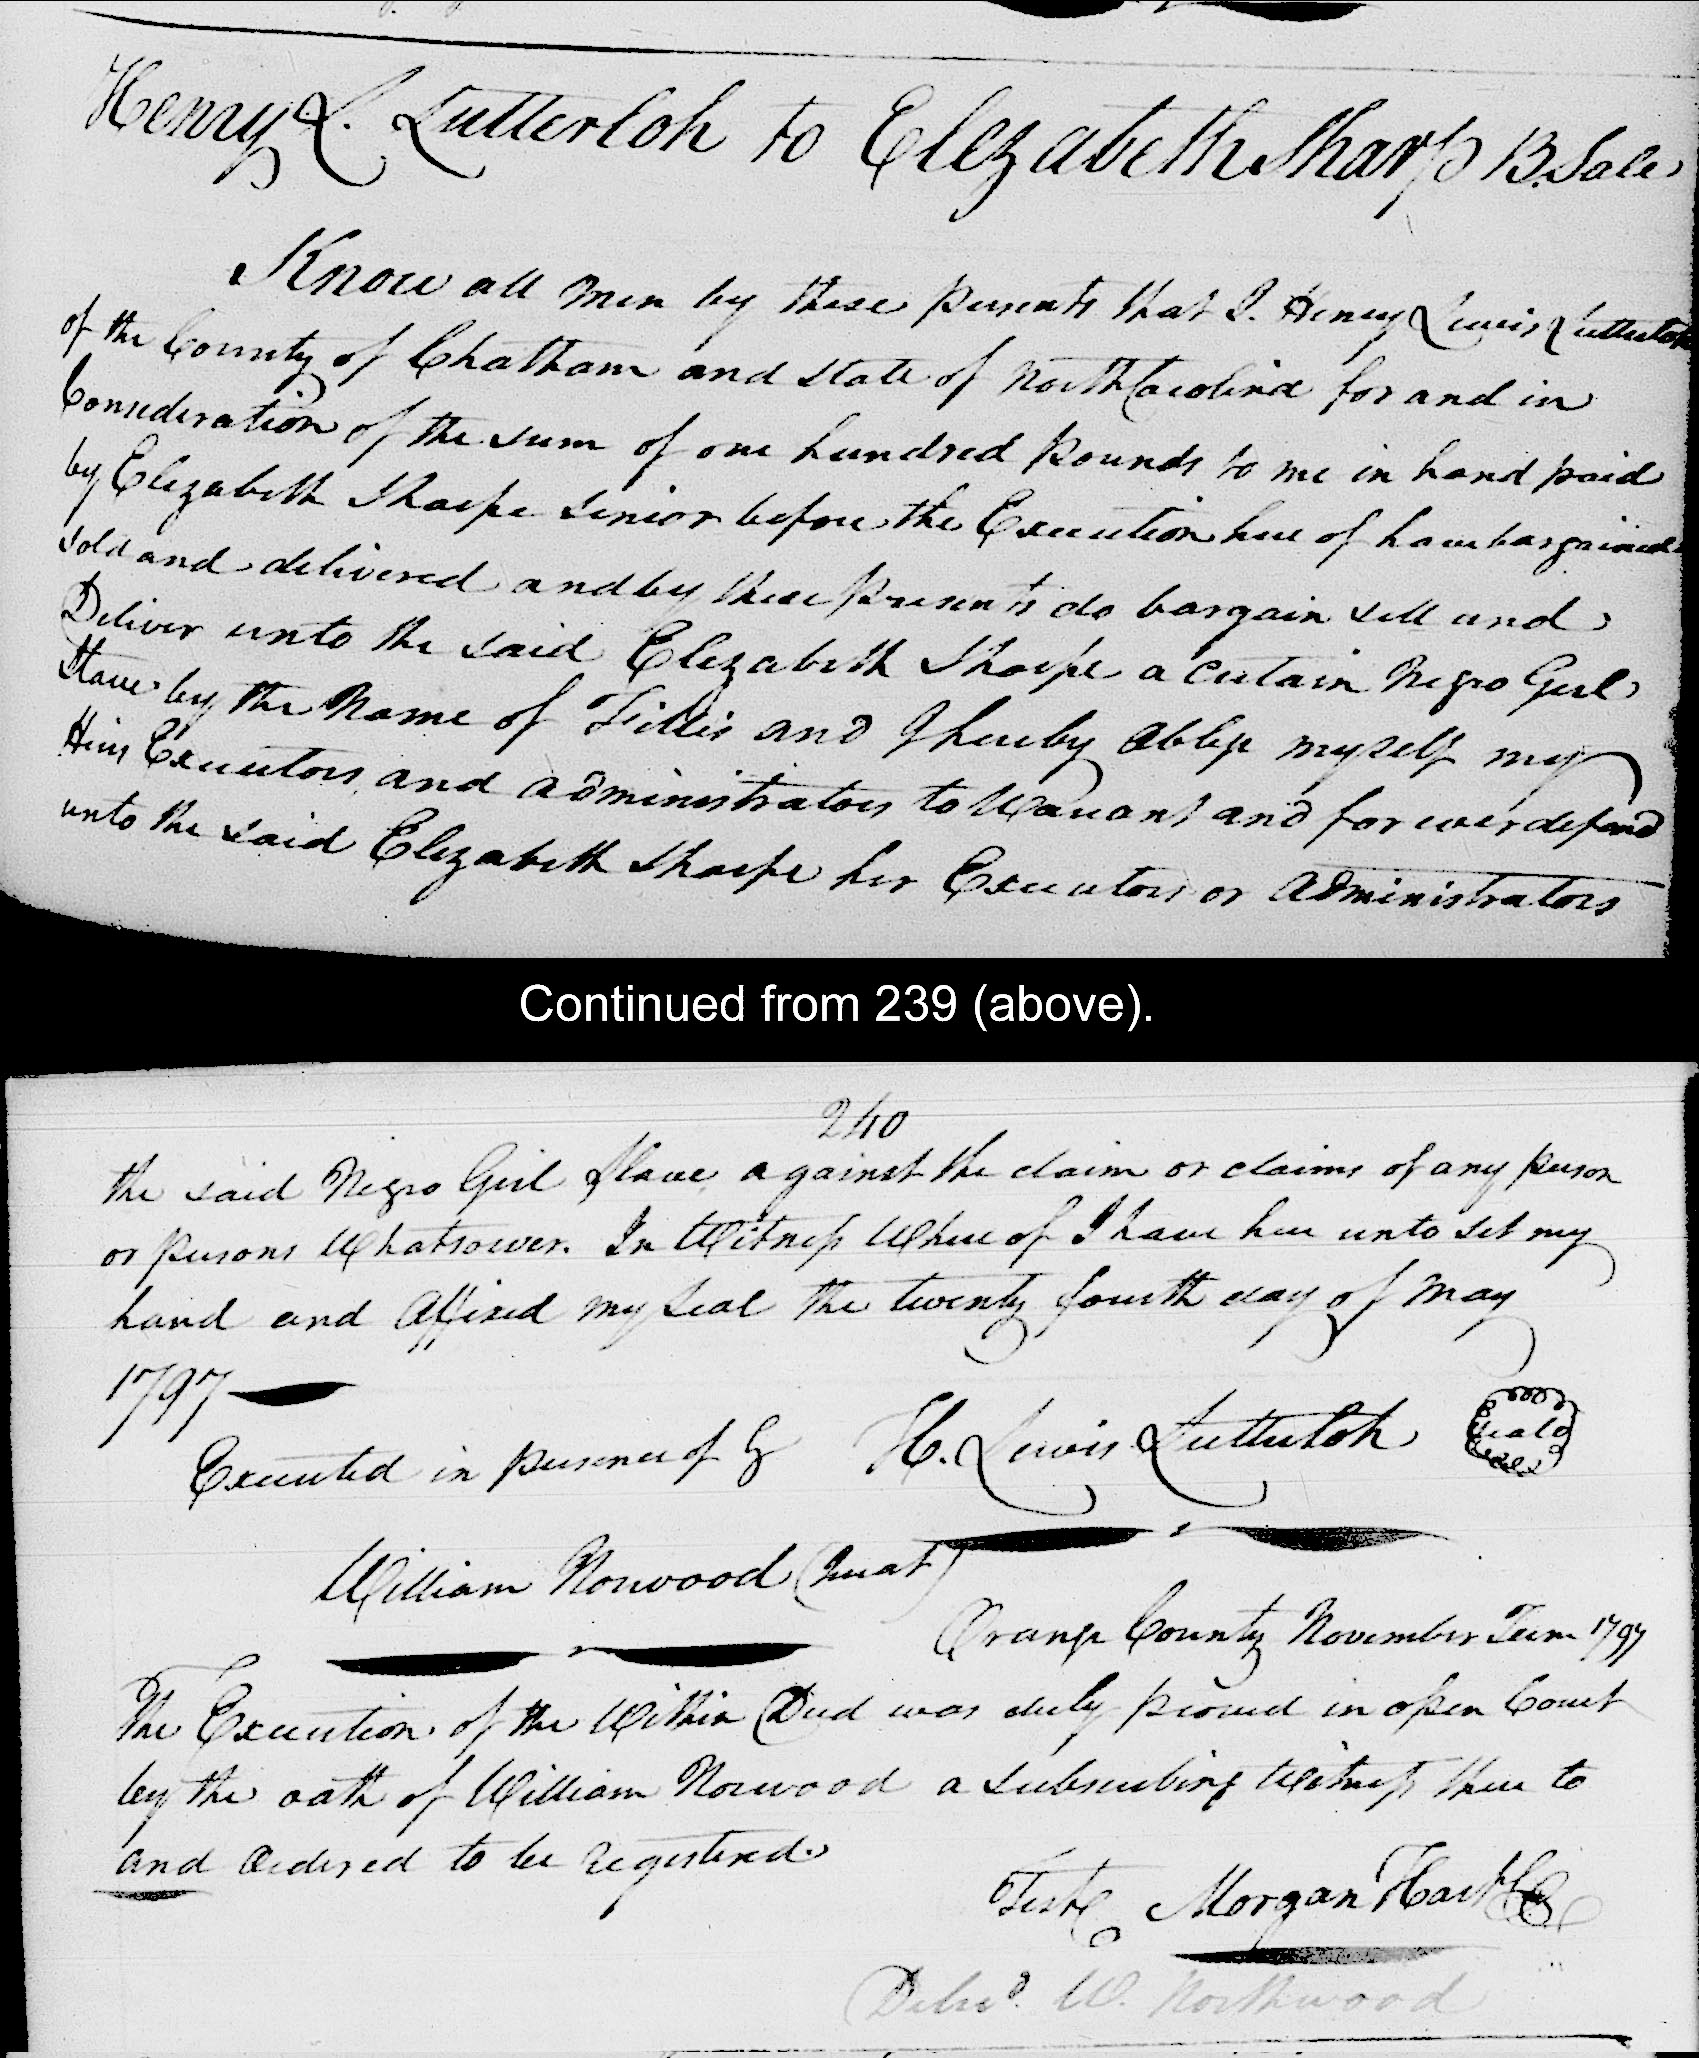 Henry L. Lutterloh to Elizabeth Sharp B. Sale
Know all men by these presents that I. Henry Lewis Lutterloh
of the County of Chatham and state of North Carolina for and in
Consideration of the sum of one hundred pounds to me in hand paid
by Elizabeth Sharpe senior before the Execution here of have bargained
sold and delivered and by these presents do bargain sell and
Deliver unto the said Elizabeth Sharpe a certain Negro Girl
Slave by the Name of Fillis and I hereby oblige myself my
Heirs Executors and administrators to Warrant and for ever defend
unto the said Elizabeth Sharpe her Executors or administrators
Continued from 239 (above).
240
the said Negro Girl Slave against the claim or claims of any person
or persons Whatsoever. In Witness Where of I have here unto set my
hand and Affixed my seal the twenty fourth day of May
1797
Executed in presence of H. Lewis Lutterloh
William Norwood (Jurat)
Orange County November Term 1797
The Execution of the Within Deed was duly proved in open Court
by the oath of William Norwood a subscribing Witness there to
and Ordered to be registered.
Teste Morgan Hart CC
Delivd. W. Northwood